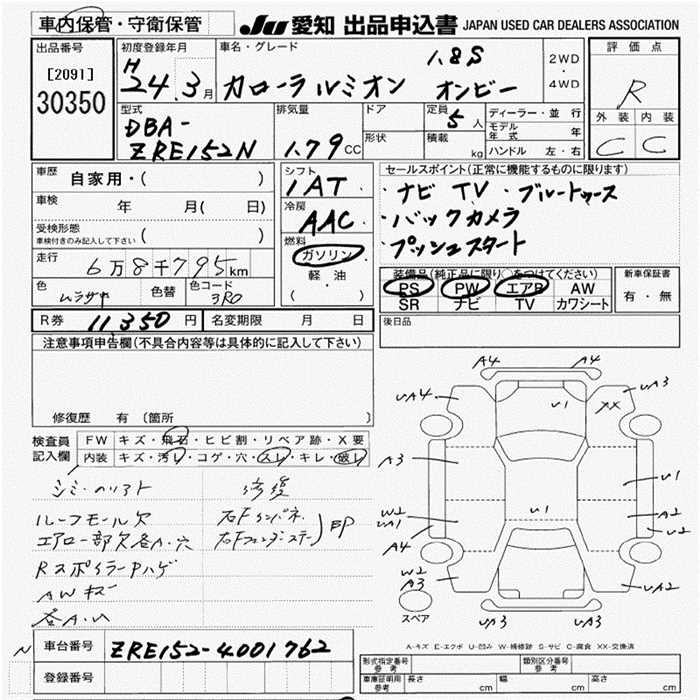 車内保管・守衛保管
JU 愛知 出品申込書 JAPAN USED CAR DEALERS ASSOCIATION
出品番号
[2091]
30350
初度登録年月
H
24.3月
車名・グレード
1.8S
カローラルミオン オンビー
2WD
・
4WD
評価点
R
外装 内装
C C
型式
DBA-
ZRE152N
排気量
1.79 CC
ドア
形状
定員 5人
積載 kg
ディーラー・並行
モデル年式 年
ハンドル 左・右
車歴 自家用・( )
車検 年 月( 日)
受検形態
車検付きのみ記入して下さい ( )
走行 6万8千795km
色 ムラサキ 色替 色コード 3R0
シフト
1AT
冷房
AAC
燃料
ガソリン
軽油
( )
セールスポイント(正常に機能するものに限ります)
・ナビ TV ・ブルートゥース
・バックカメラ
・プッシュスタート
装備品(純正品に限り○をつけてください)
PS PW エアB AW
SR ナビ TV カワシート
新車保証書
有・無
R券 11350円 名変期限 月 日
後日品
注意事項申告欄(不具合内容等は具体的に記入して下さい)
修復歴 有 〔箇所 〕
検査員
記入欄
FW キズ・飛石・ヒビ割・リペア跡・X要
内装 キズ・汚レ・コゲ・穴・スレ・キレ・破レ
修復
ルーフモール欠
エアロ一部欠各A・穴
RスポイラーPハゲ
AWキズ
各A・U
BP
A4 A4
UA4 U1 XX UA3
A3
U1
W2 A2
UA1 U2
A4
W2
A3 UA2
UA3 UA3
スペア
A-キズ E-エクボ U-凹み W-補修跡 S-サビ C-腐食 XX-交換済
N
車台番号 ZRE152-4001762
登録番号
形式指定番号
参考
類別区分番号
参考
車庫証明用
参考
長さ cm 幅 cm 高さ cm